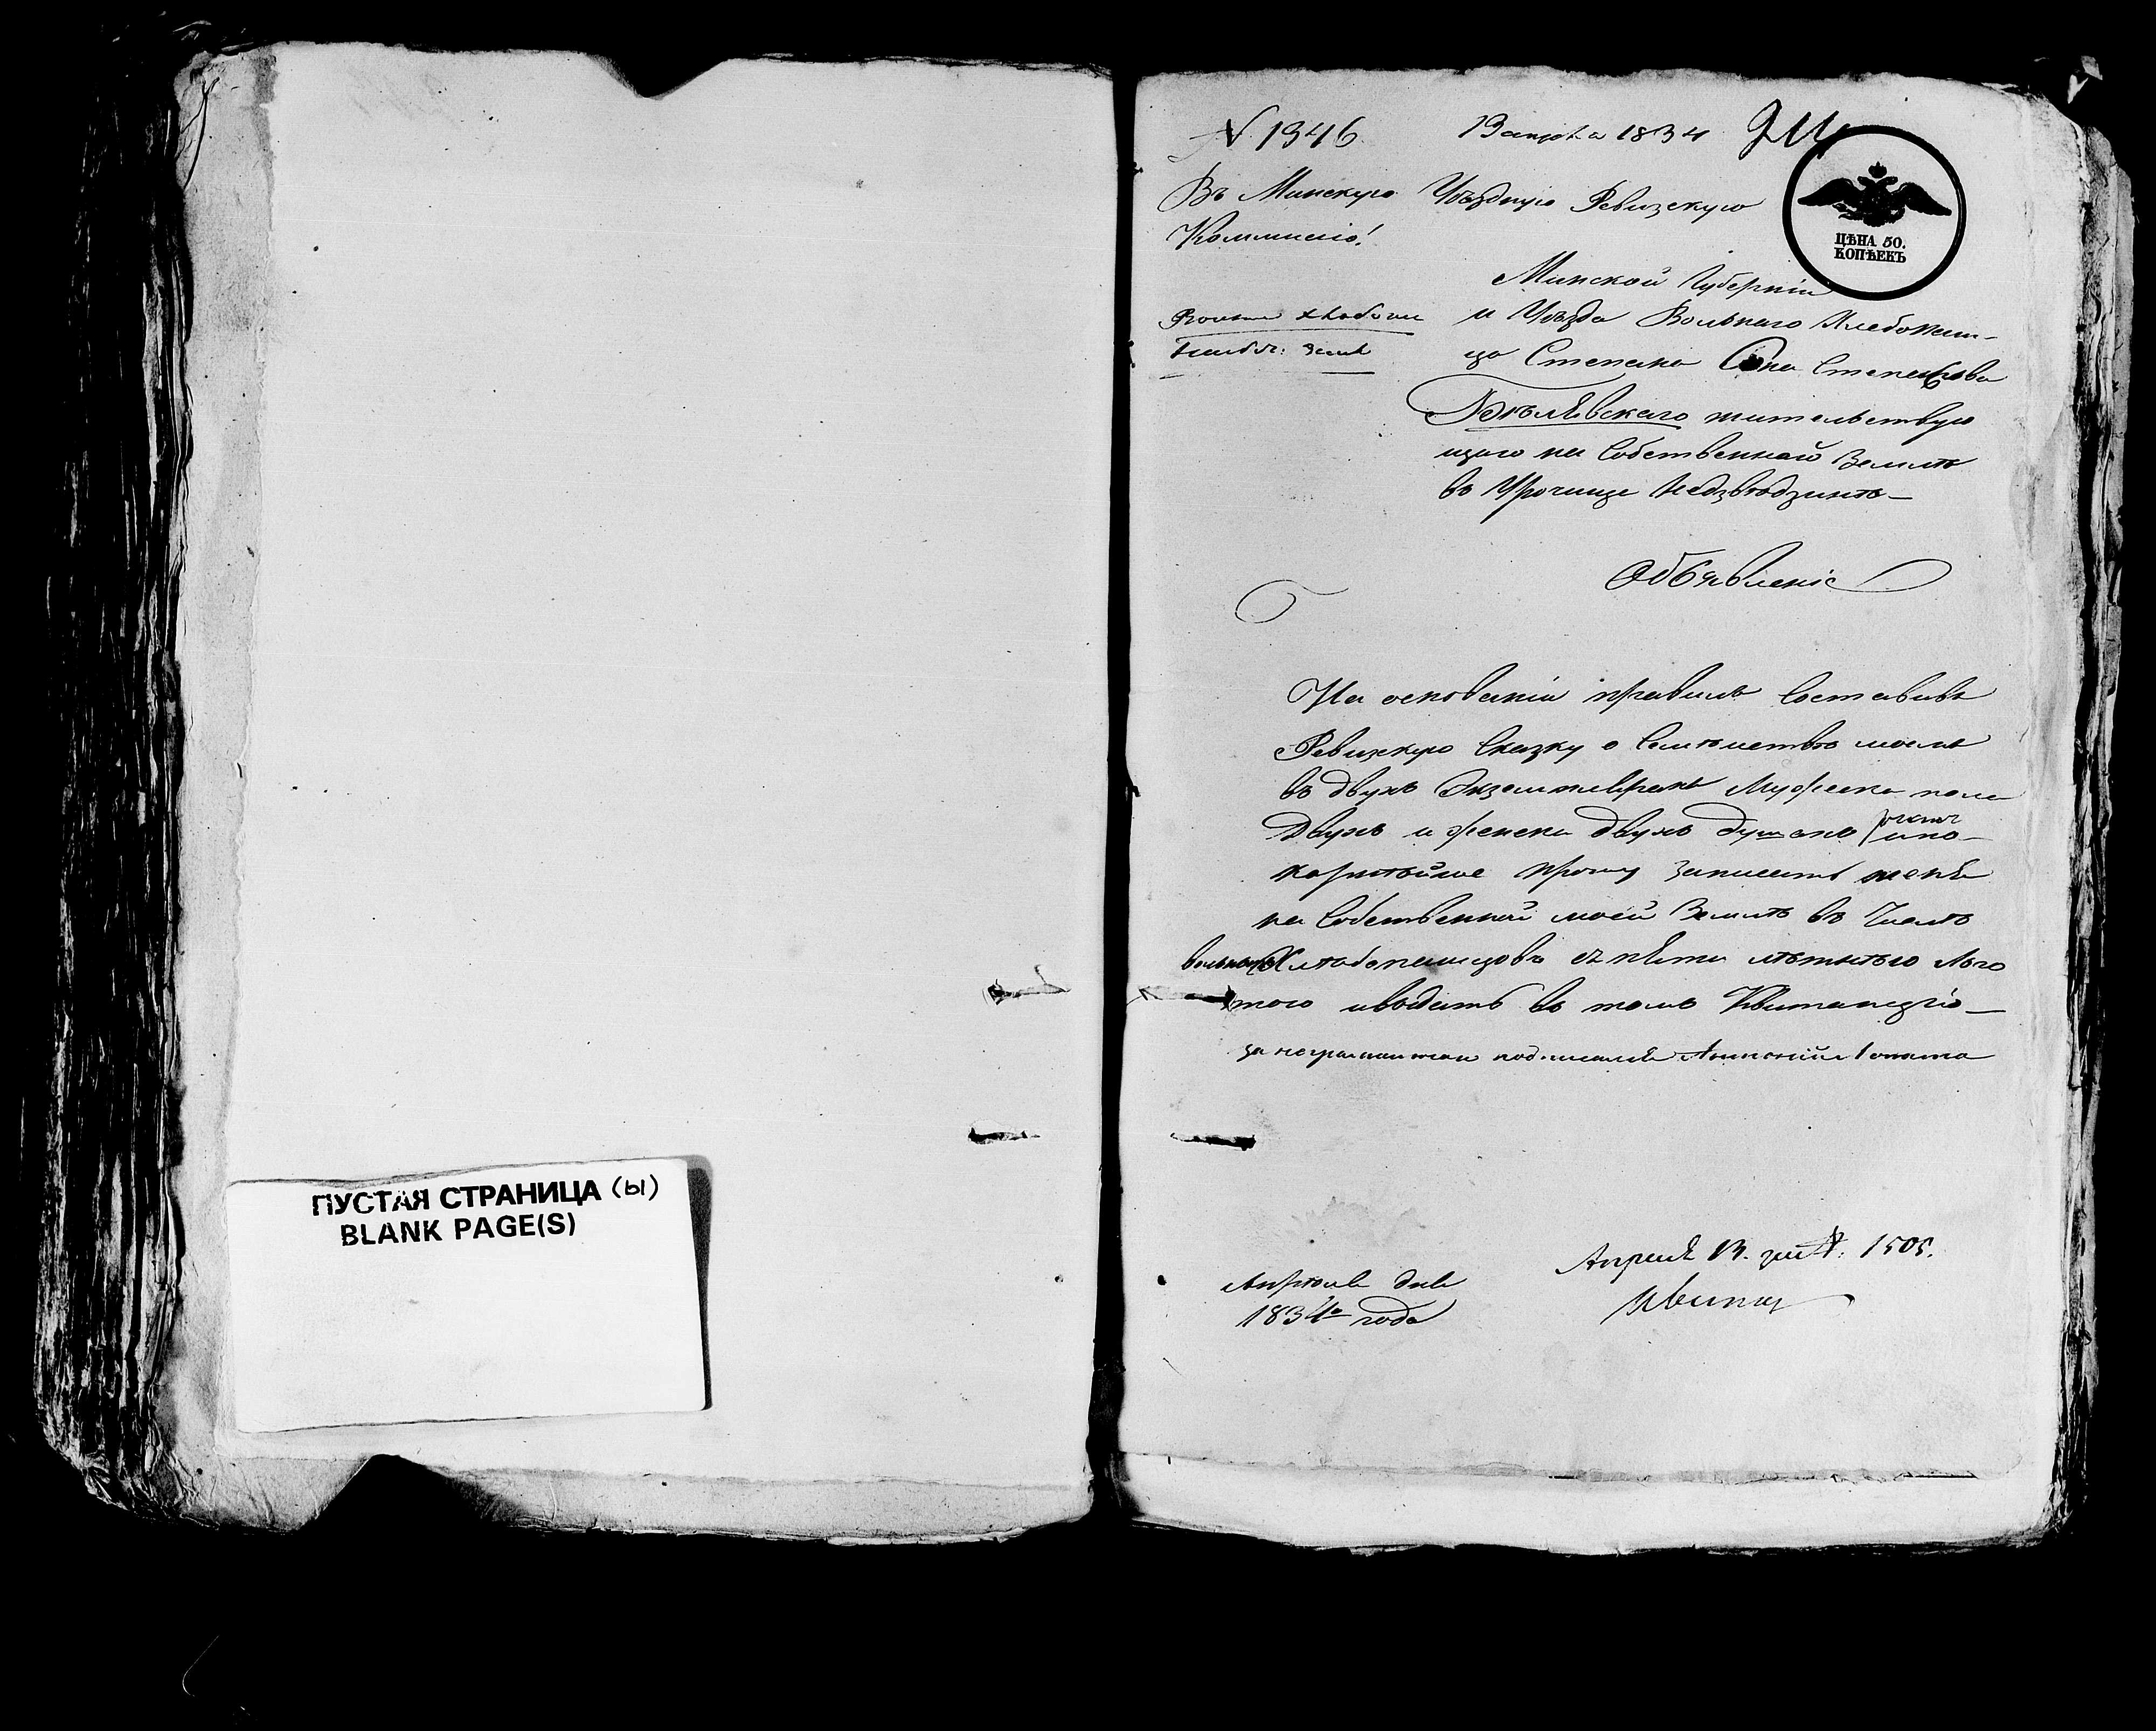 ПУСТАЯ СТРАНИЦА (ы)
BLANK PAGE(S)
№ 1346. 13 апреля 1834
ЦѢНА 50.
КОПѢЕКЪ
Въ Минскую Уѣздную Ревизскую
Коммисію!
Минской Губерніи
и Уѣзда Вольнаго Хлебопаш-
ца Степана Сына Степанова
жительствую
щаго на Собственной Землѣ
въ Урочище Недзвѣдзинѣ
Объявленіе
На основаніи правилъ Составивъ
Ревизскую Сказку о Семѣйствѣ моемъ
въ двухъ Экземплярахъ Мужеска пола
Двухъ и женска двухъ душахъ
корнѣйше прошу записать мене
на Собственной моей Землѣ въ Числѣ
вольныхъ Хлѣбопашцовъ съ пяти лѣтнѣю Льго
тою и выдать въ томъ Квитанцію
за неграмотнаго подписался Антоній
Апрѣля дня
1834го года
Апреля 13. 1505.